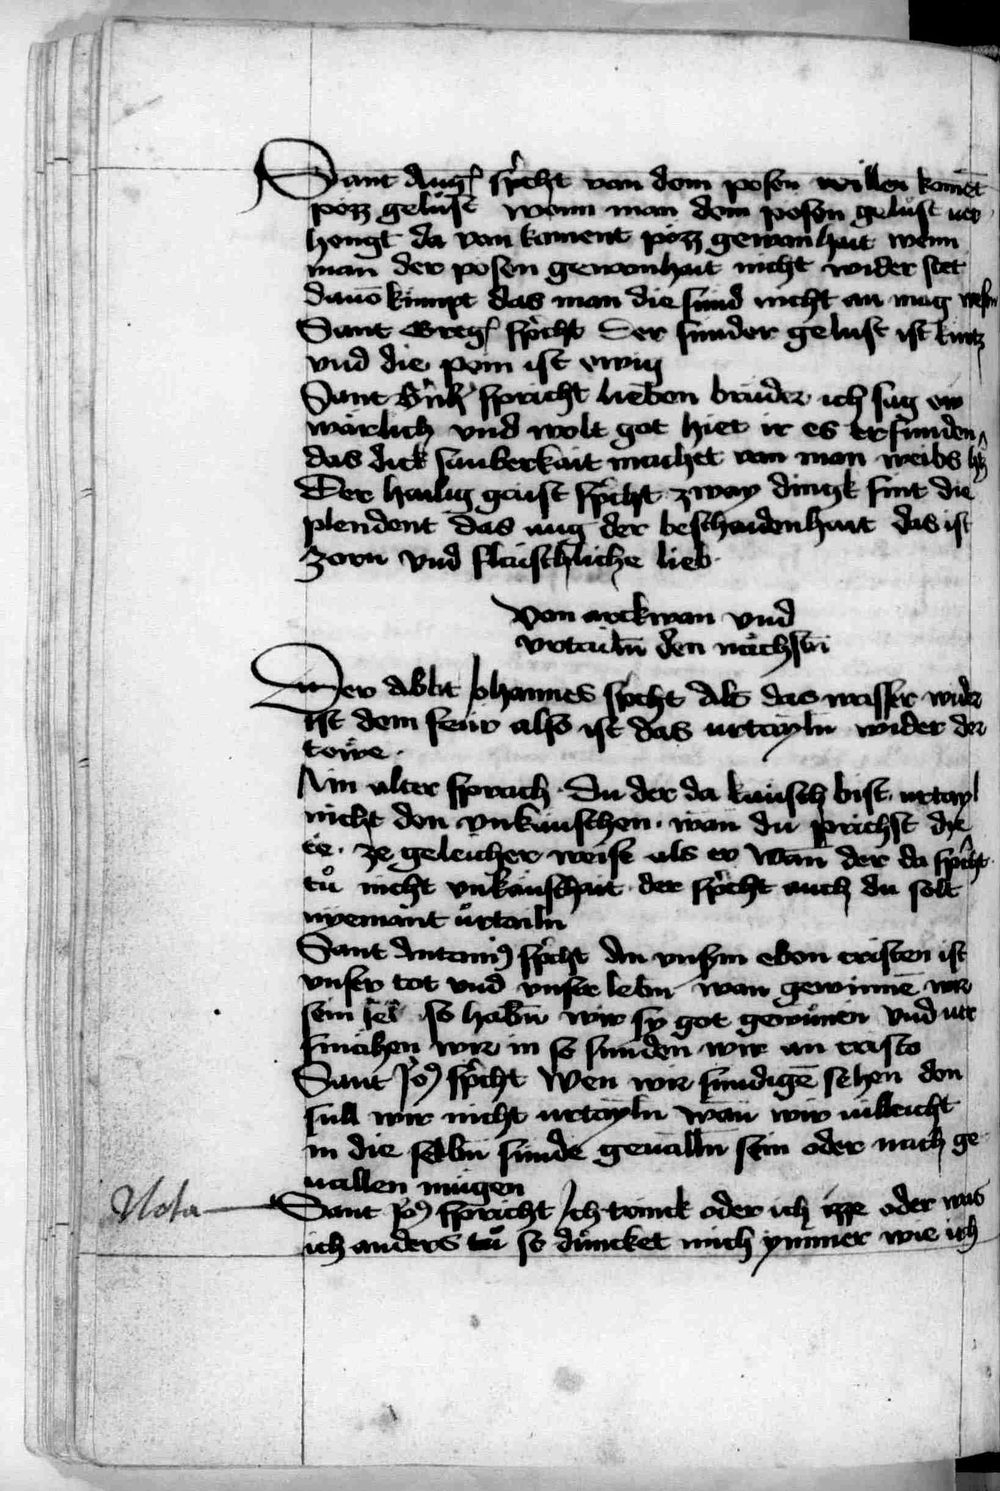 Sant Aug spricht von dem posen willen komēt
pözz gelüst wenn man dem posen gelüst ver
hengt da von koment pözz gewonhait wenn
man der posen gewonhait nicht wider stet
dauō kumpt das man die sünd nicht an mag wesn
Sant Greg spricht Der sunder gelust ist kurtz
vnd die pein ist ewig
Sant spricht lieben brüder ich sag ew
wärlich vnd wolt got hiet ir es erfunden
das dick sauberkait machet von man weibs
Der hailig gaist spricht zway dingk sint die
plendent das aug der beschaidenhait das ist
Zorn vnd flaischliche lieb
Von arckwan vnd
vrtailn den nächstn
Der Abbt Johannes spricht Als das wasser wider
ist dem feur also ist das urtayln wider der
rewe
Ain alter sprach Du der da käusch bist urtayl
nicht den vnkäuschen wan du prichst dye
ee ze geleicher weise als er Wan der da spricht
tů nicht vnkäuschait der spricht auch du solt
nyemant ůrtailn
Sant Antoni spricht An vnserm eben cristen ist
vnser tot vnd vnser leben wan gewinnē wir
sein sel so habn wir sy got gewunen vnd ver
smähen wir in so sunden wir an cristo
Sant Jo spricht Wen wir sundigē sehen den
sull wir nicht urtayln wan wir villeicht
in die selbn sünde geualln sein oder nach ge
uallen mügen
Nota Sant Jo spricht Ich trinck oder ich izze oder was
ich anders tů so duncket mich ymmer wie ich